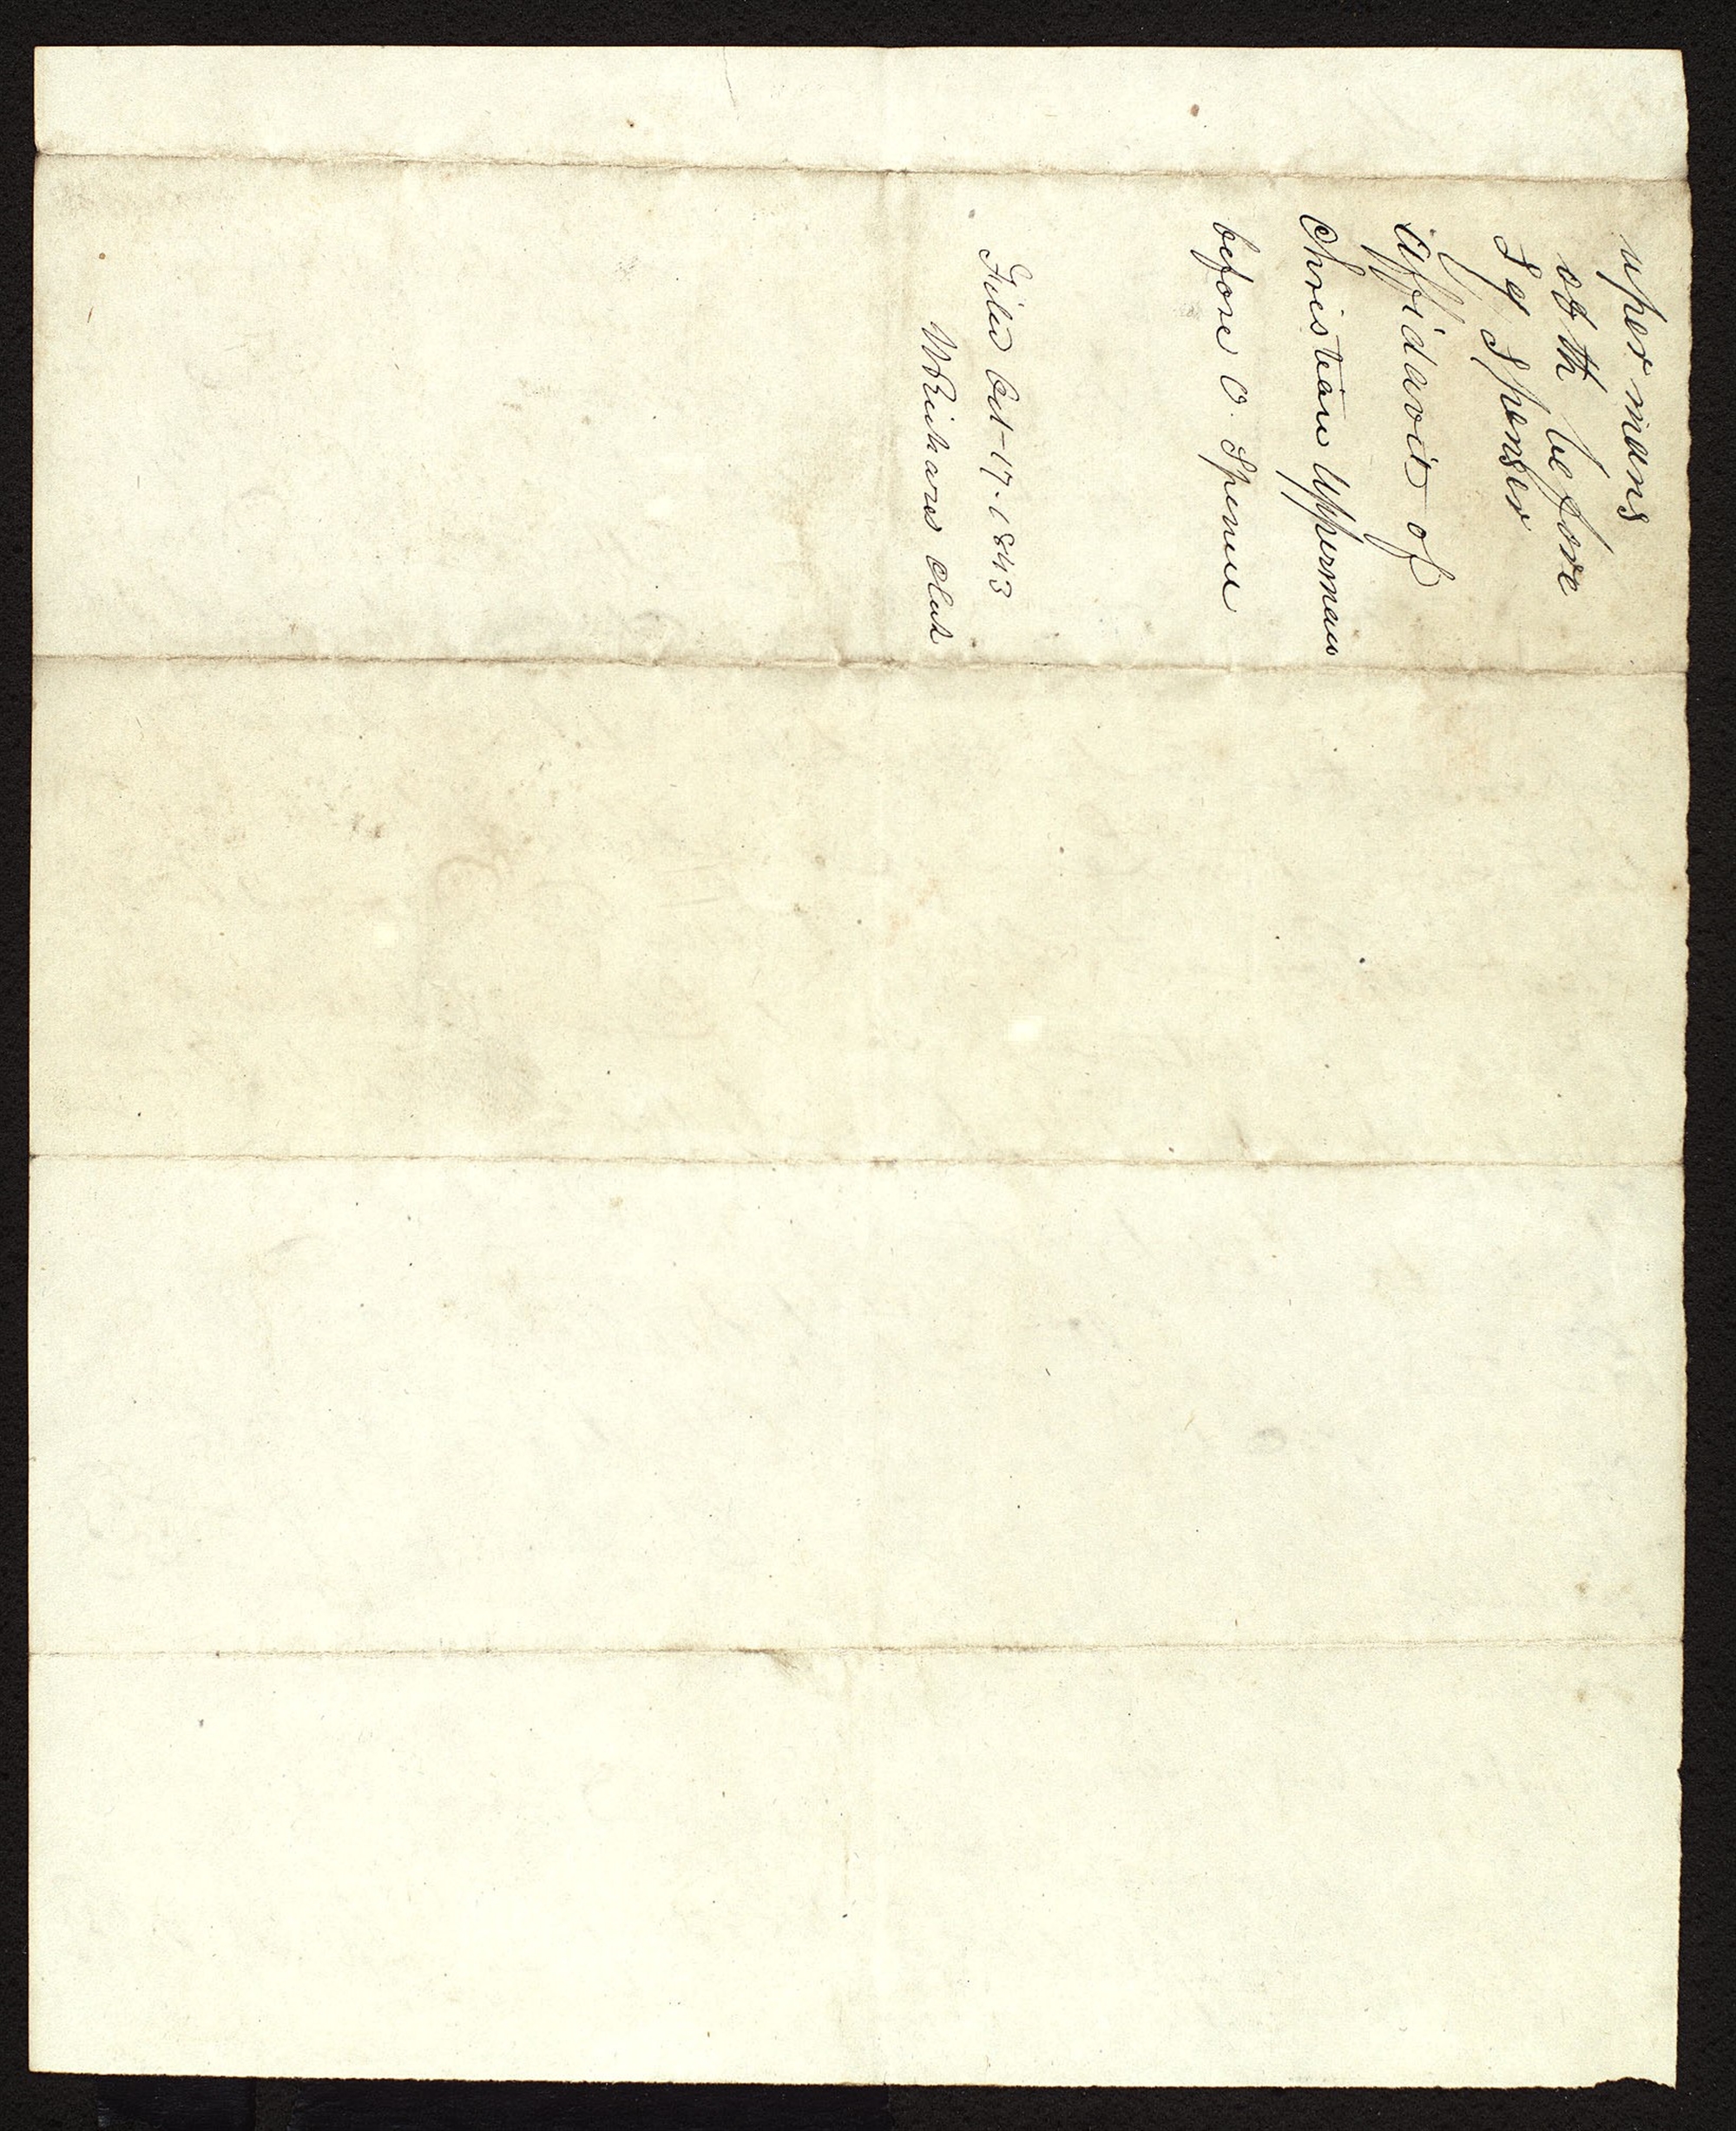 upermans
oth before
Sq Spenser
Affidavit of
Christian Upperman
before O. Spencer
Filed Oct-17-1843
W Reinhard Clerk